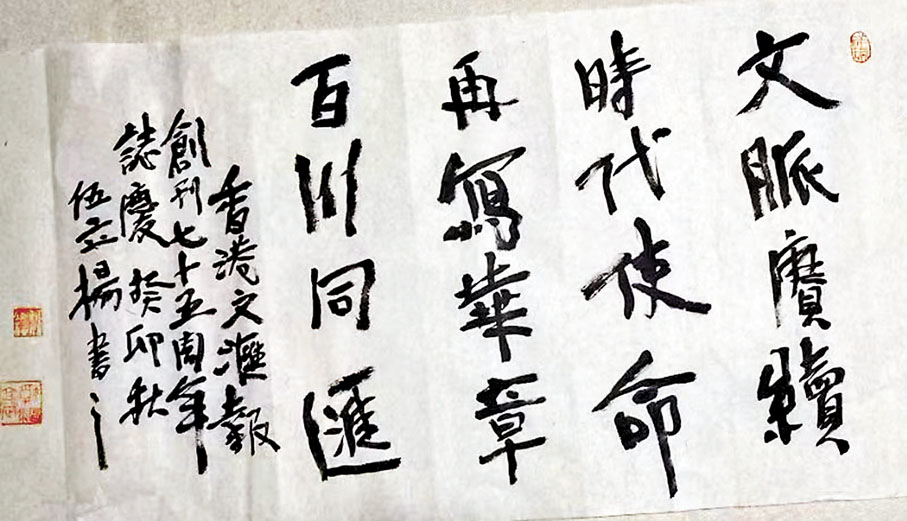 文脈賡續
時代使命
再寫華章
百川同匯
香港文滙報
創刊七十五周年
誌慶 癸卯秋
伍立楊書之